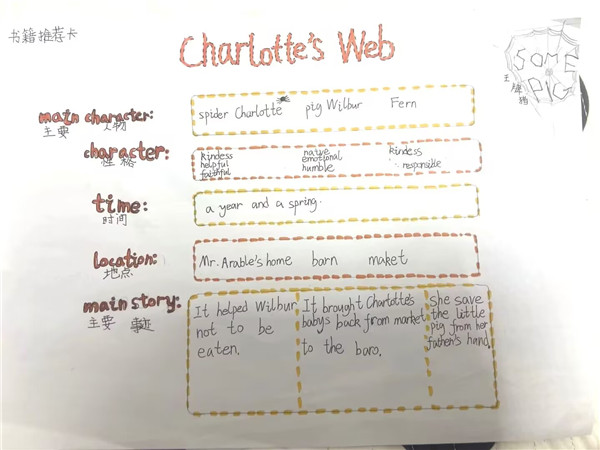 书籍推荐卡
Charlotte's Web
SOME
PIG
main character:
主要 人物
spider Charlotte pig Wilbur Fern
character:
性格
kindess naive kindess
helpful emotional responsible
faithful humble
time:
时间
a year and a spring.
location:
地点
Mr. Arable's home barn maket
main story:
主要 事迹
It helped Wilbur
not to be
eaten.
It brought Charlotte's
babys back from market
to the barn.
She save
the little
pig from her
father's hand.